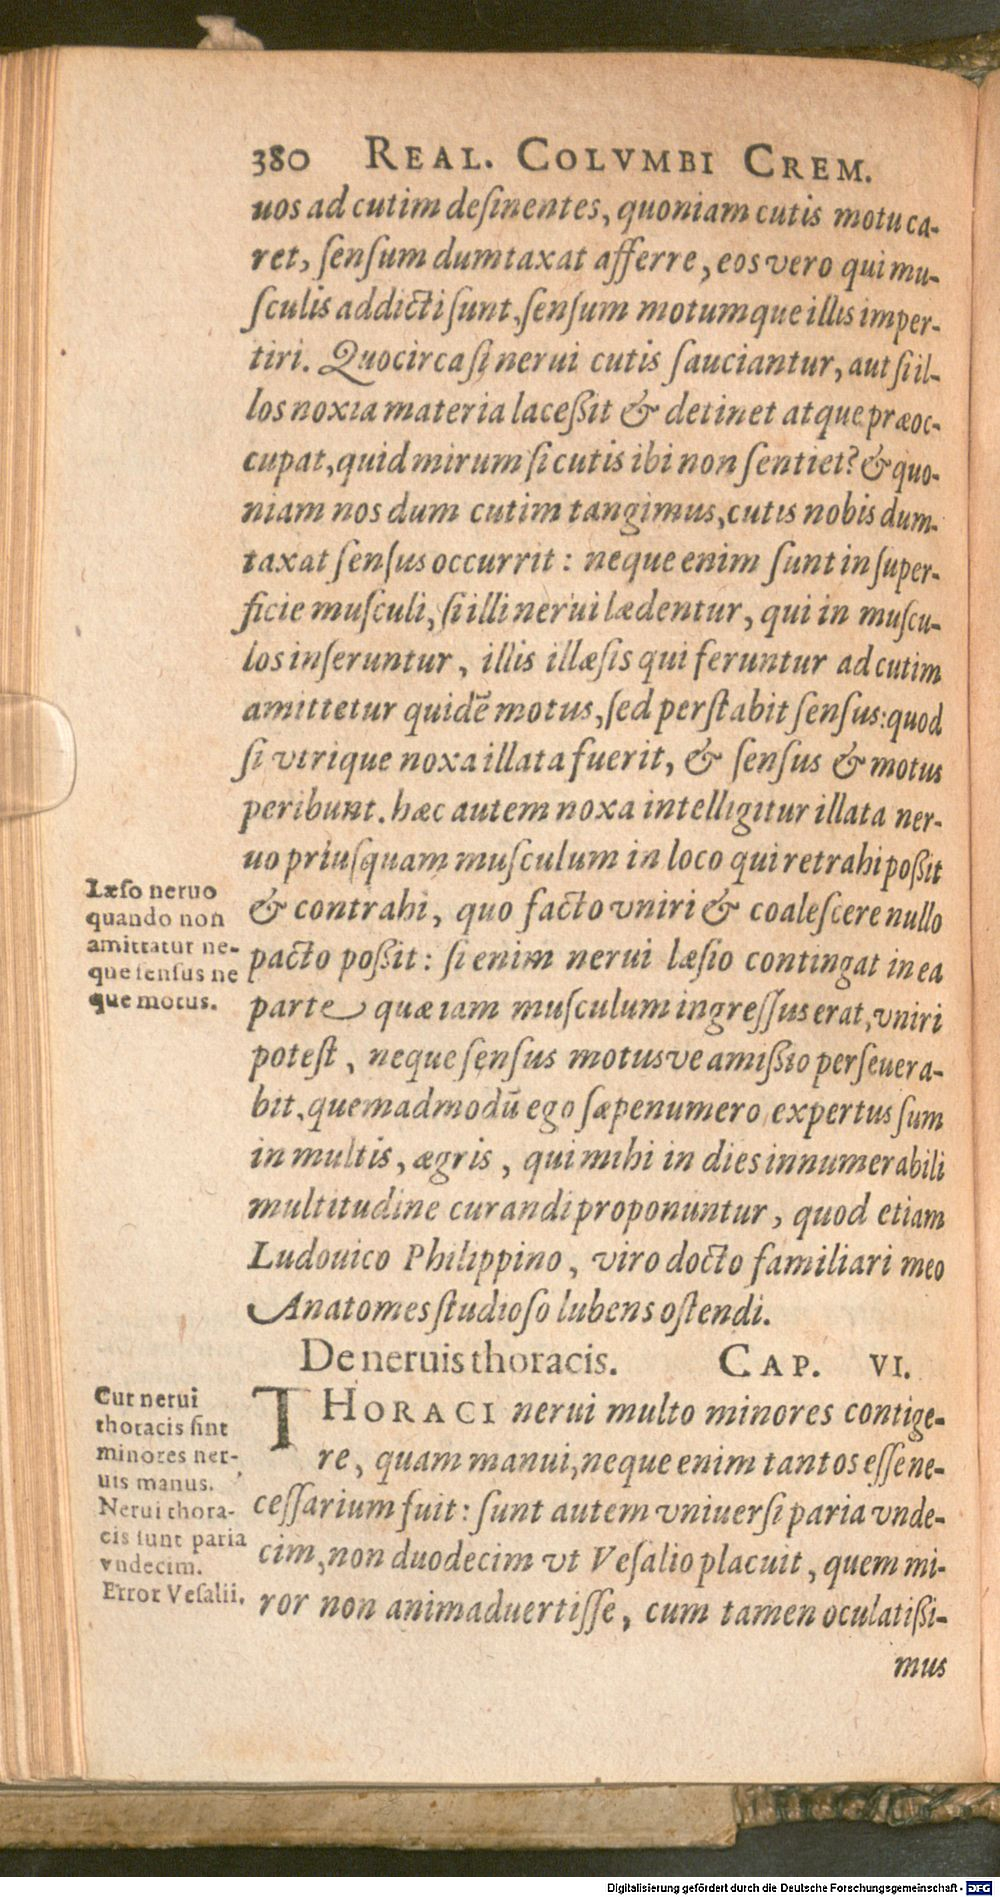 380 REAL. COLVMBI CREM.
uos ad cutim deſinentes, quoniam cutis motu ca-
ret, ſenſum dumtaxat afferre, eos vero qui mu-
ſculis addicti ſunt, ſenſum motumque illis imper-
tiri. Quocirca ſi nerui cutis ſauciantur, aut ſi il-
los noxia materia laceßit & detinet atque præoc-
cupat, quid mirum ſi cutis ibi non ſentiet? & quo-
niam nos dum cutim tangimus, cutis nobis dum-
taxat ſenſus occurrit: neque enim ſunt in ſuper-
ficie muſculi, ſi illi nerui lædentur, qui in muſcu-
los inſeruntur, illis illæſis qui feruntur ad cutim
amittetur quidē motus, ſed perſtabit ſenſus: quod
ſi vtrique noxa illata fuerit, & ſenſus & motus
peribunt. hæc autem noxa intelligitur illata ner-
uo priuſquam muſculum in loco qui retrahi poßit
& contrahi, quo facto vniri & coaleſcere nullo
pacto poßit: ſi enim nerui læſio contingat in ea
parte quæ iam muſculum ingreſſus erat, vniri
poteſt, neque ſenſus motusve amißio perſeuera-
bit, quemadmodū ego ſæpenumero expertus ſum
in multis, ægris, qui mihi in dies innumerabili
multitudine curandi proponuntur, quod etiam
Ludouico Philippino, viro docto familiari meo
Anatomes ſtudioſo lubens oſtendi.
Læſo neruo
quando non
amittatur ne-
que ſenſus ne
que motus.
De neruis thoracis. CAP. VI.
THORACI nerui multo minores contige-
re, quam manui, neque enim tantos eſſe ne-
ceſſarium fuit: ſunt autem vniuerſi paria vnde-
cim, non duodecim vt Veſalio placuit, quem mi-
ror non animaduertiſſe, cum tamen oculatißi-
mus
Cur nerui
thoracis ſint
minores ner-
uis manus.
Nerui thora-
cis ſunt paria
vndecim.
Error Veſalii.
Digitalisierung gefördert durch die Deutsche Forschungsgemeinschaft - DFG